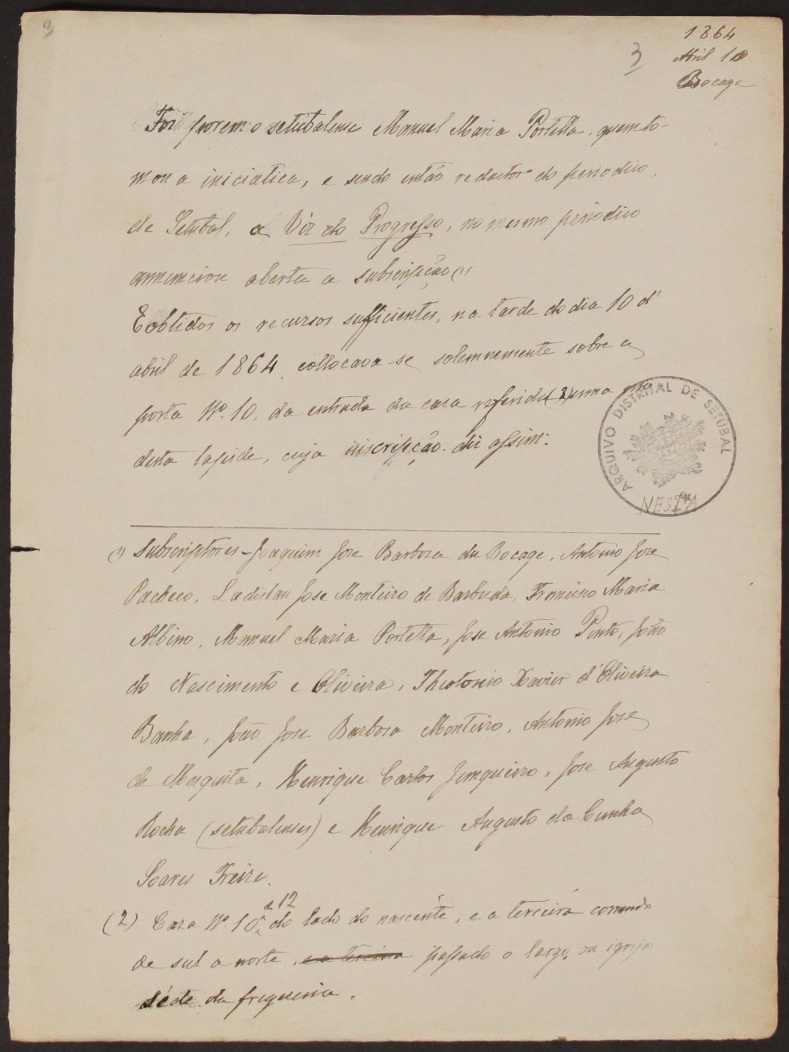 3
3
1864
Abril 10
Bocage
Foi porem o setubalense Manuel Maria Portella, quem to-
mou a iniciativa, e sendo então redactor do periodico,
de Setubal, a Voz do Progresso, no mesmo periodico
annunciou aberta a subscripção (1)
E obtidos os recursos sufficientes, na tarde do dia 10 d'
abril de 1864, collocava-se solemnemente sobre a
porta Nº. 10, da entrada da casa referida (2) uma
lapide, cuja inscripção diz assim:
ARQUIVO DISTRITAL DE SETUBAL
(1) Subscriptores - Joaquim Jose Barbosa du Bocage, Antonio Jose
Pacheco, Ladislau Jose Monteiro de Barbuda, Francisco Maria
Albino, Manuel Maria Portella, Jose Antonio Pinto, João
do Nascimento e Oliveira, Theotonio Xavier d'Oliveira
Banha, João Jose Barbosa Monteiro, Antonio Jose
de Mesquita, Henrique Carlos Junqueiro, Jose Augusto
Rocha (setubalenses) e Henrique Augusto da Cunha
Soares Freire.
(2) Caza Nº. 10 a 12 do lado do nascente, e a terceira correndo
de sul a norte, e a terceira passado o largo, da igreja
séde da freguezia.